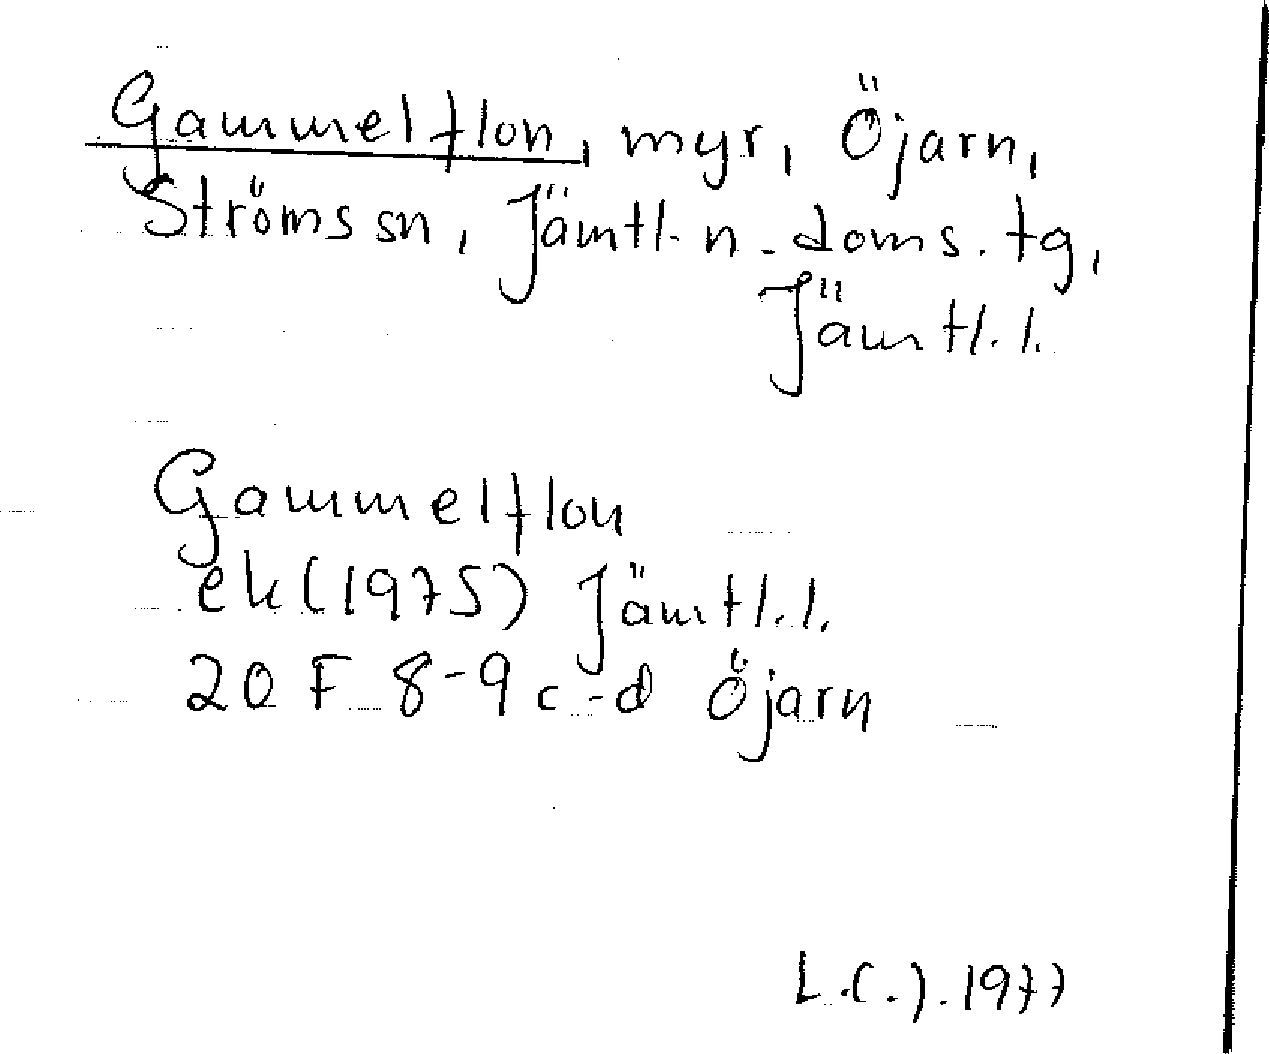 Gammelflon, myr, Öjarn,
Ströms sn, Jämtl. n. doms. tg,
Jämtl. l.
Gammelflon
ek (1975) Jämtl. l.
20 F 8-9 c-d Öjarn
L.C.J. 1977